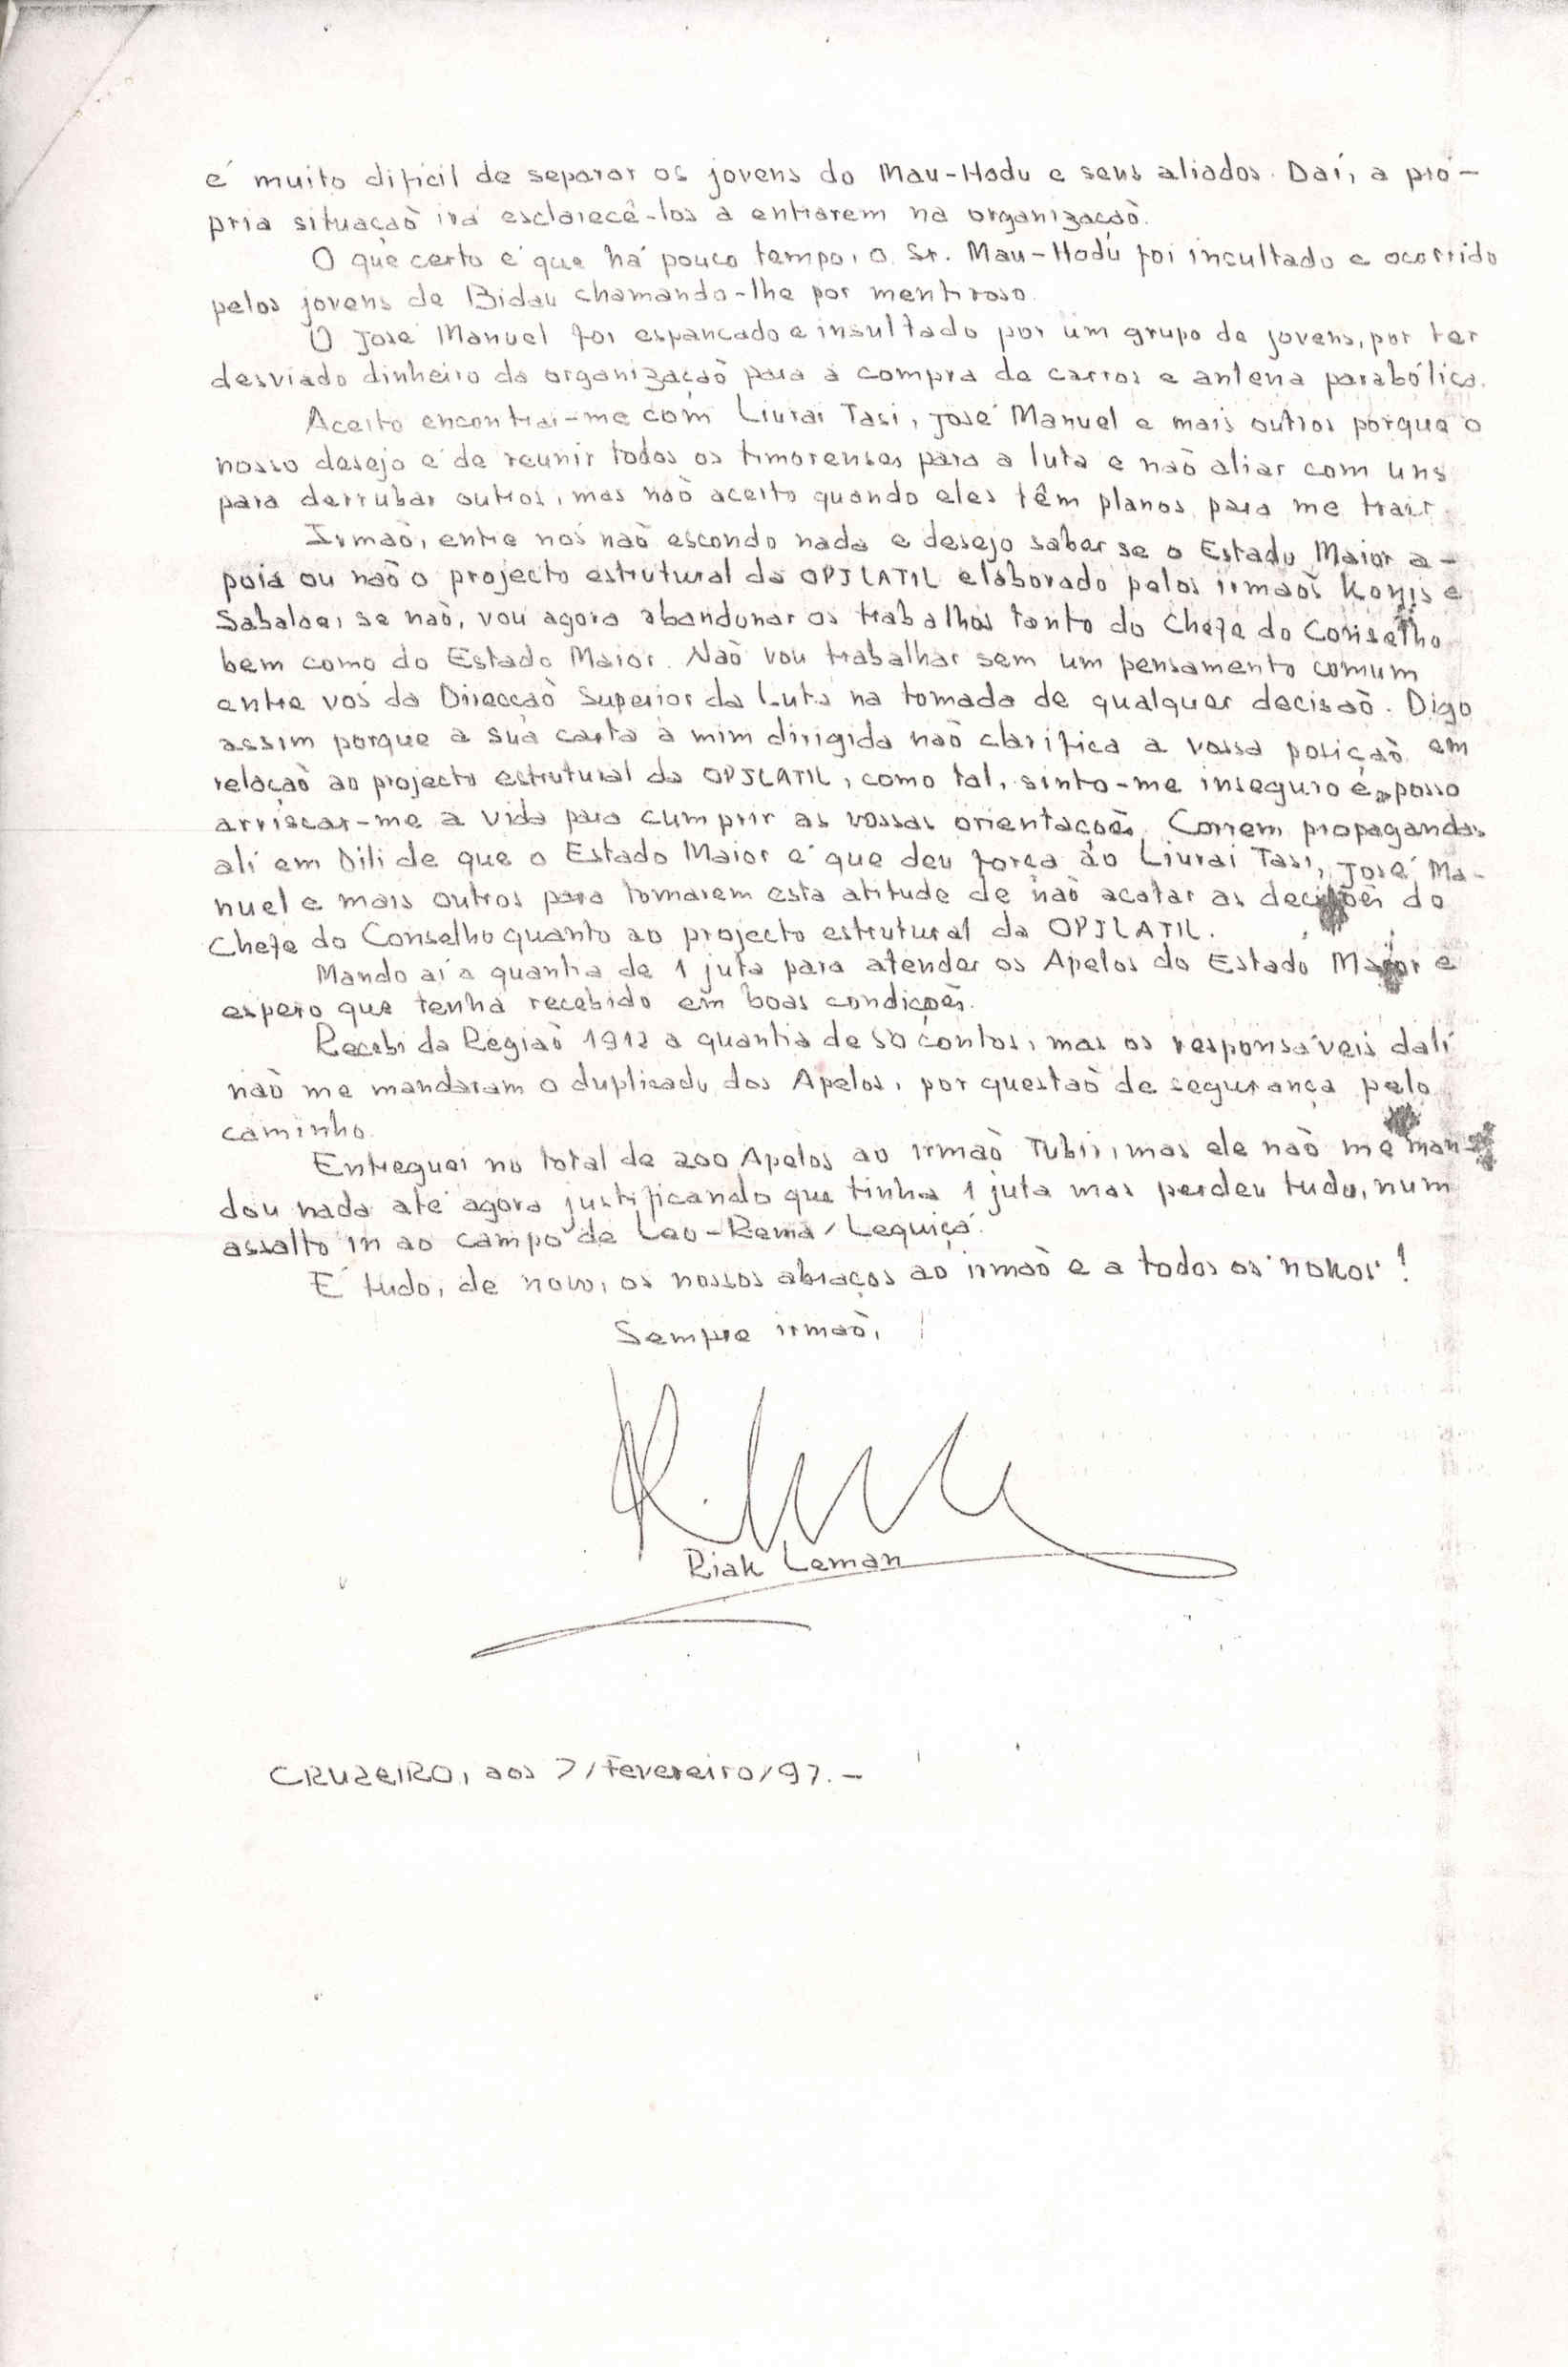 é muito dificil de separar os jovens do Mau-Hodu e seus aliados. Daí, a pró-
pria situaçaõ irá esclarecê-los a entrarem na organizaçaõ.
O que certo é que há pouco tempo, o Sr. Mau-Hodu foi incultado e ocorrido
pelos jovens de Bidau chamando-lhe por mentiroso.
O José Manuel foi espancado e insultado por um grupo de jovens, por ter
desviado dinheiro da organizaçaõ para a compra de carros e antena parabólica.
Aceito encontrar-me com Liurai Tasi, José Manuel e mais outros porque o
nosso desejo é de reunir todos os timorenses para a luta e naõ aliar com uns
para derrubar outros, mas naõ aceito quando eles têm planos para me trair.
Irmaõ, entre nós naõ escondo nada e desejo saber se o Estado Maior a-
poia ou naõ o projecto estrutural da OPJLATIL elaborado pelos irmaõs Konis e
Sabalae, se naõ, vou agora abandonar os trabalhos tanto do Chefe do Conselho
bem como do Estado Maior. Naõ vou trabalhar sem um pensamento comum
entre vós da Direcçaõ Superior da Luta na tomada de qualquer decisaõ. Digo
assim porque a sua carta a mim dirigida naõ clarifica a vossa posiçaõ em
relaçaõ ao projecto estrutural da OPJLATIL, como tal, sinto-me inseguro e posso
arriscar-me a vida para cumprir as vossas orientaçoẽs. Correm propagandas
ali em Dili de que o Estado Maior é que deu força ao Liurai Tasi, José Ma-
nuel e mais outros para tomarem esta atitude de naõ acatar as decisoẽs do
Chefe do Conselho quanto ao projecto estrutural da OPJLATIL.
Mando aí a quantia de 1 juta para atender os Apelos do Estado Maior e
espero que tenha recebido em boas condiçoẽs.
Recebi da Regiaõ 1912 a quantia de 50 contos, mas os responsáveis dali
naõ me mandaram o duplicado dos Apelos, por questaõ de segurança pelo
caminho.
Entreguei no total de 200 Apelos ao irmaõ Tubir, mas ele naõ me man-
dou nada até agora justificando que tinha 1 juta mas perdeu tudo, num
assalto in ao campo de Leo-Rema/Lequiçá.
É tudo, de novo, os nossos abraços ao irmaõ e a todos os 'nokos'!
Sempre irmaõ,
Riak Leman
CRUZEIRO, aos 7/Fevereiro/97.-